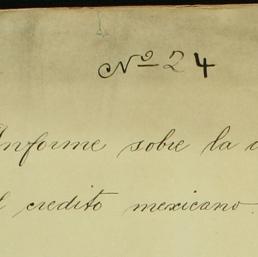 Nº 24
Informe sobre la
credito mexicano.